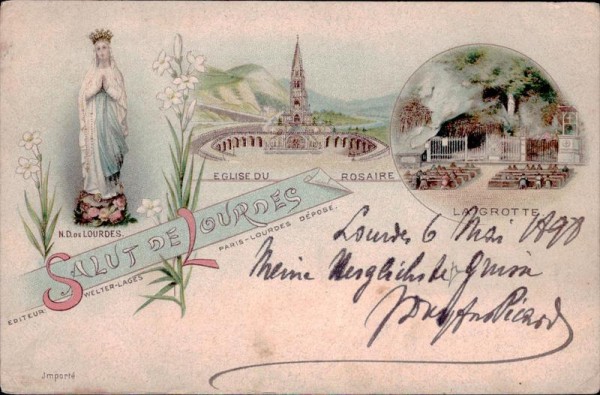 N.D. DE LOURDES.
EGLISE DU ROSAIRE
LA GROTTE
SALUT DE LOURDES
PARIS-LOURDES DÉPOSÉ.
EDITEUR WELTER-LAGES
Lourdes 6 Mai 1898
Meine
Importé